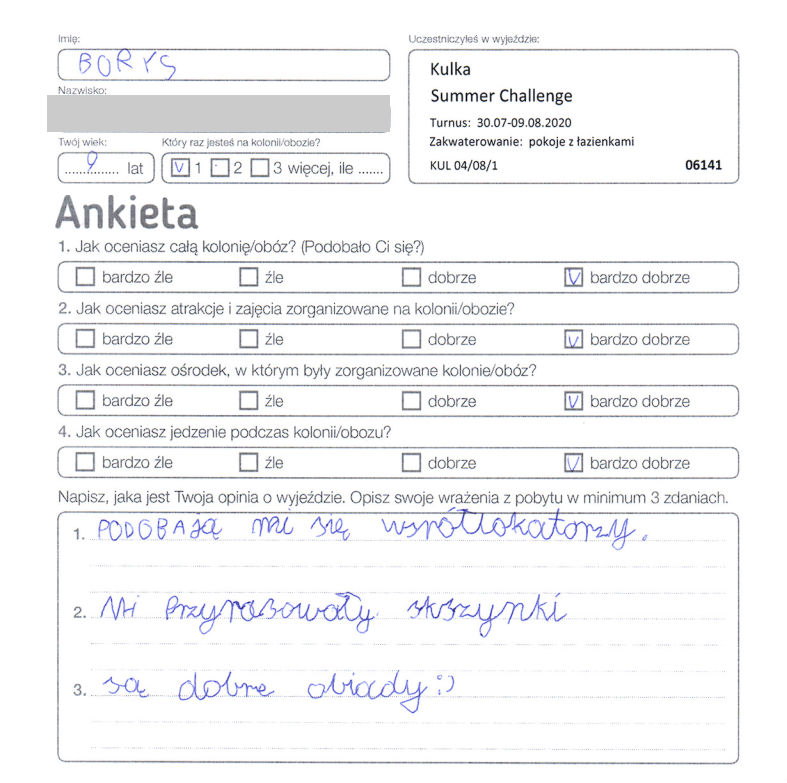 Imię:
BORYS
Nazwisko:
Twój wiek: Który raz jesteś na kolonii/obozie?
9 lat V 1 2 3 więcej, ile .......
Uczestniczyłeś w wyjeździe:
Kulka
Summer Challenge
Turnus: 30.07-09.08.2020
Zakwaterowanie: pokoje z łazienkami
KUL 04/08/1 06141
Ankieta
1. Jak oceniasz całą kolonię/obóz? (Podobało Ci się?)
bardzo źle źle dobrze V bardzo dobrze
2. Jak oceniasz atrakcje i zajęcia zorganizowane na kolonii/obozie?
bardzo źle źle dobrze V bardzo dobrze
3. Jak oceniasz ośrodek, w którym były zorganizowane kolonie/obóz?
bardzo źle źle dobrze V bardzo dobrze
4. Jak oceniasz jedzenie podczas kolonii/obozu?
bardzo źle źle dobrze V bardzo dobrze
Napisz, jaka jest Twoja opinia o wyjeździe. Opisz swoje wrażenia z pobytu w minimum 3 zdaniach.
1. PODOBAJĄ mi się współlokatorzy.
2. Mi przypasowały skszynki
3. są dobre obiady :)